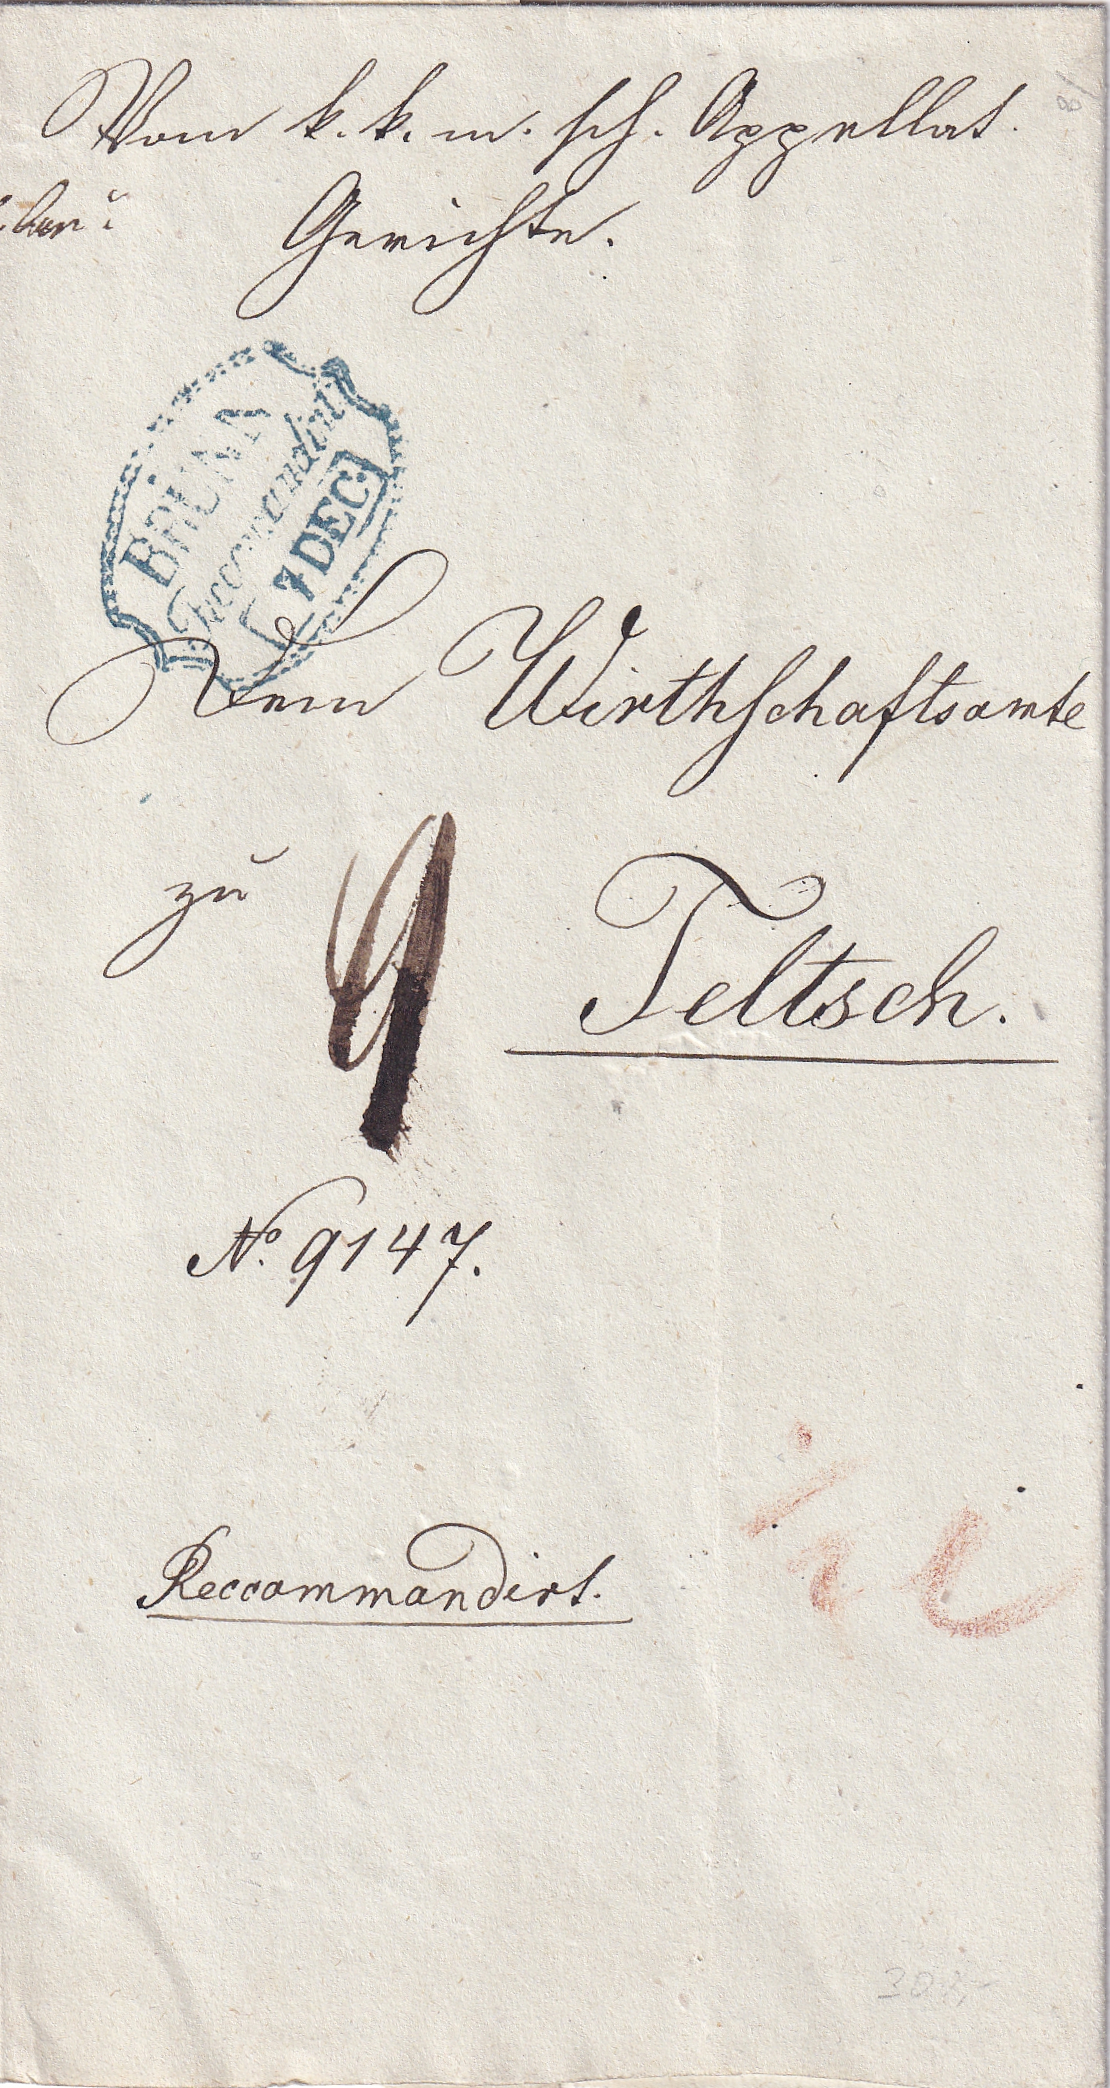 Vom k. k. m. sch. Appellat.
Gerichte.
BRÜNN
Reccomandirt
7 DEC:
Dem Wirthschaftsamte
zu Teltsch.
No. 9147.
Reccommandirt.